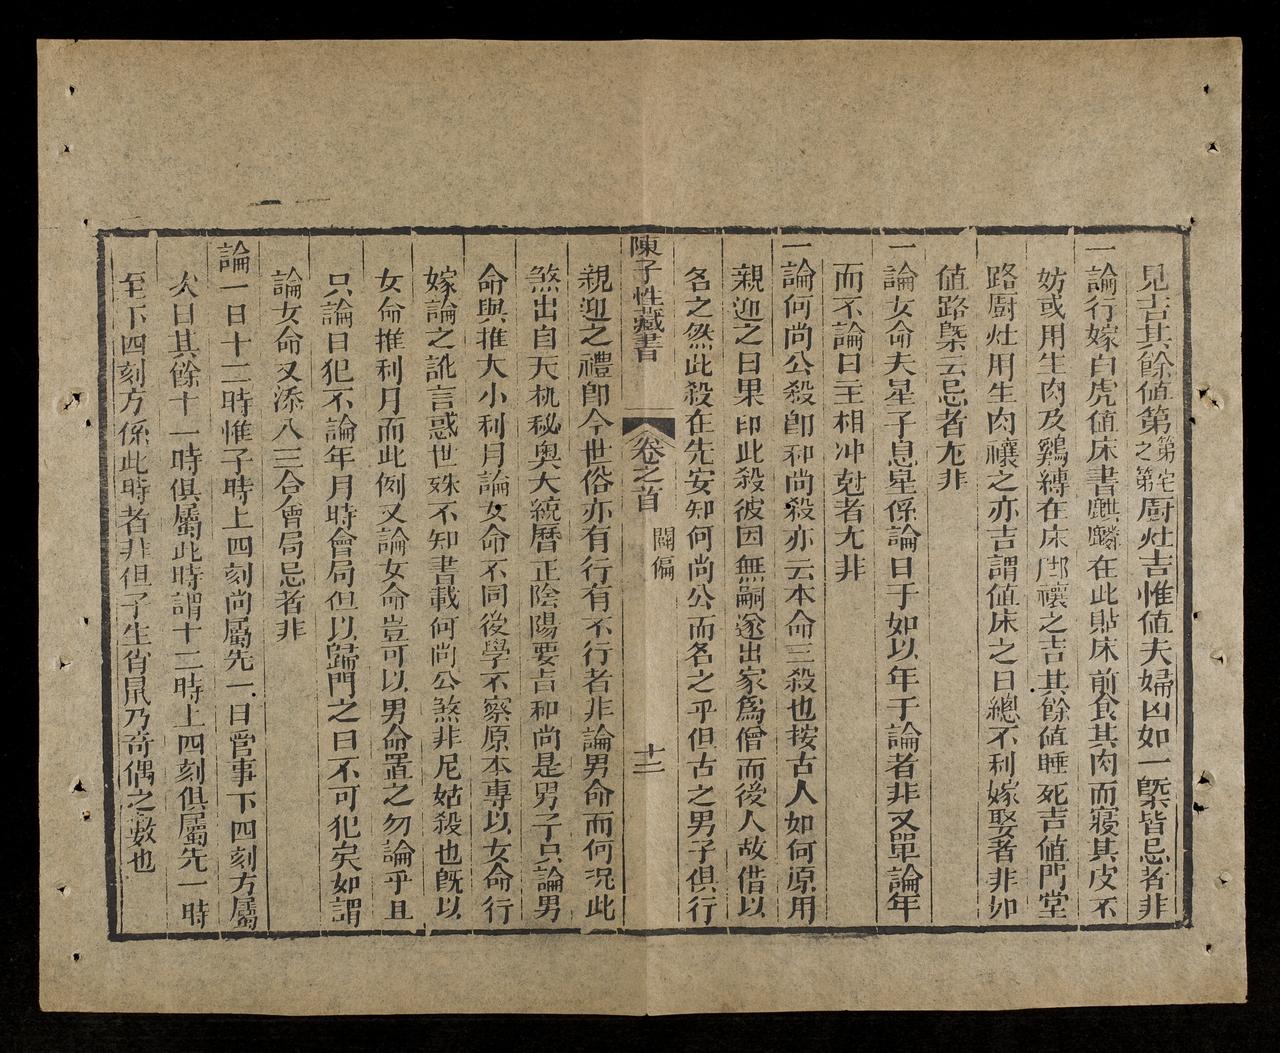 見吉其餘值第第宅之第廚灶吉惟值夫婦凶如一槩皆忌者非
一論行嫁白虎值床書麒麟在此貼床前食其肉而寢其皮不
妨或用生肉及鷄縛在床脚禳之吉其餘值睡死吉值門堂
路厨灶用生肉禳之亦吉謂值床之日總不利嫁娶者非如
值路槩云忌者尤非
一論女命夫星子息星係論日于如以年于論者非又單論年
而不論日主相冲尅者尤非
一論何尚公殺卽和尚殺亦云本命三殺也按古人如何原用
親迎之日果印此殺彼因無嗣遂出家爲僧而後人故借以
名之然此殺在先安知何尚公而名之乎但古之男子俱行
陳子性藏書 卷之首 闢偏 十二
親迎之禮卽今世俗亦有行有不行者非論男命而何况此
煞出自天机秘奥大統曆正陰陽要旨和尚是男子只論男
命與推大小利月論女命不同後學不察原本專以女命行
嫁論之訛言惑世殊不知書載何尚公煞非尼姑殺也旣以
女命推利月而此例又論女命豈可以男命置之勿論乎且
只論日犯不論年月時會局但以歸門之日不可犯矣如謂
論女命又添八三合會局忌者非
論一日十二時惟子時上四刻尚屬先一日管事下四刻方屬
次日其餘十一時俱屬此時謂十二時上四刻俱屬先一時
至下四刻方係此時者非但子生肖鼠乃奇偶之數也